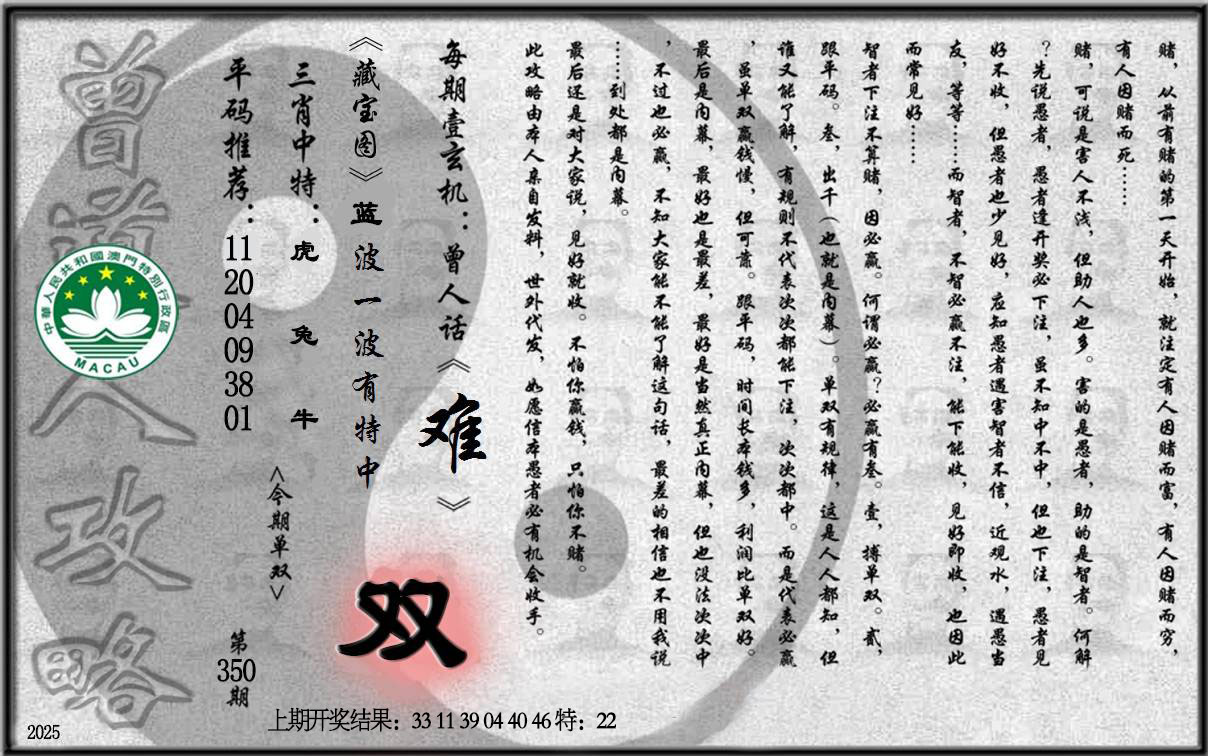 赌，从前有赌的第一天开始，就注定有人因赌而富，有人因赌而穷，
有人因赌而死……
赌，可说是害人不浅，但助人也多。害的是愚者，助的是智者。何解
？先说愚者，愚者逢开奖必下注，虽不知中不中，但也下注，愚者见
好不收，但愚者也少见好，应知愚者遇害智者不信，近观水，遇愚当
友，等等……而智者，不智必赢不注，能下能收，见好即收，也因此
而常见好……
智者下注不算赌，因必赢。何谓必赢？必赢有叁。壹，搏单双。贰，
跟平码。叁，出千（也就是内幕）。单双有规律，这是人人都知，但
谁又能了解，有规则不代表次次都能下注，次次都中。而是代表必赢
，虽单双赢钱慢，但可靠。跟平码，时间长本钱多，利润比单双好。
最后是内幕，最好也是最差，最好是当然真正内幕，但也没法次次中
，不过也必赢，不知大家能不能了解这句话，最差的相信也不用我说
……到处都是内幕。
最后还是对大家说，见好就收。不怕你赢钱，只怕你不赌。
此攻略由本人亲自发料，世外代发，如愿信本愚者必有机会收手。
每期壹玄机：曾人话《难》
《藏宝图》蓝波一波有特中
双
三肖中特：虎 兔 牛
<今期单双>
平码推荐：11 20 04 09 38 01
第350期
曾道人攻略
中華人民共和國澳門特別行政區
MACAU
上期开奖结果：33 11 39 04 40 46 特：22
2025